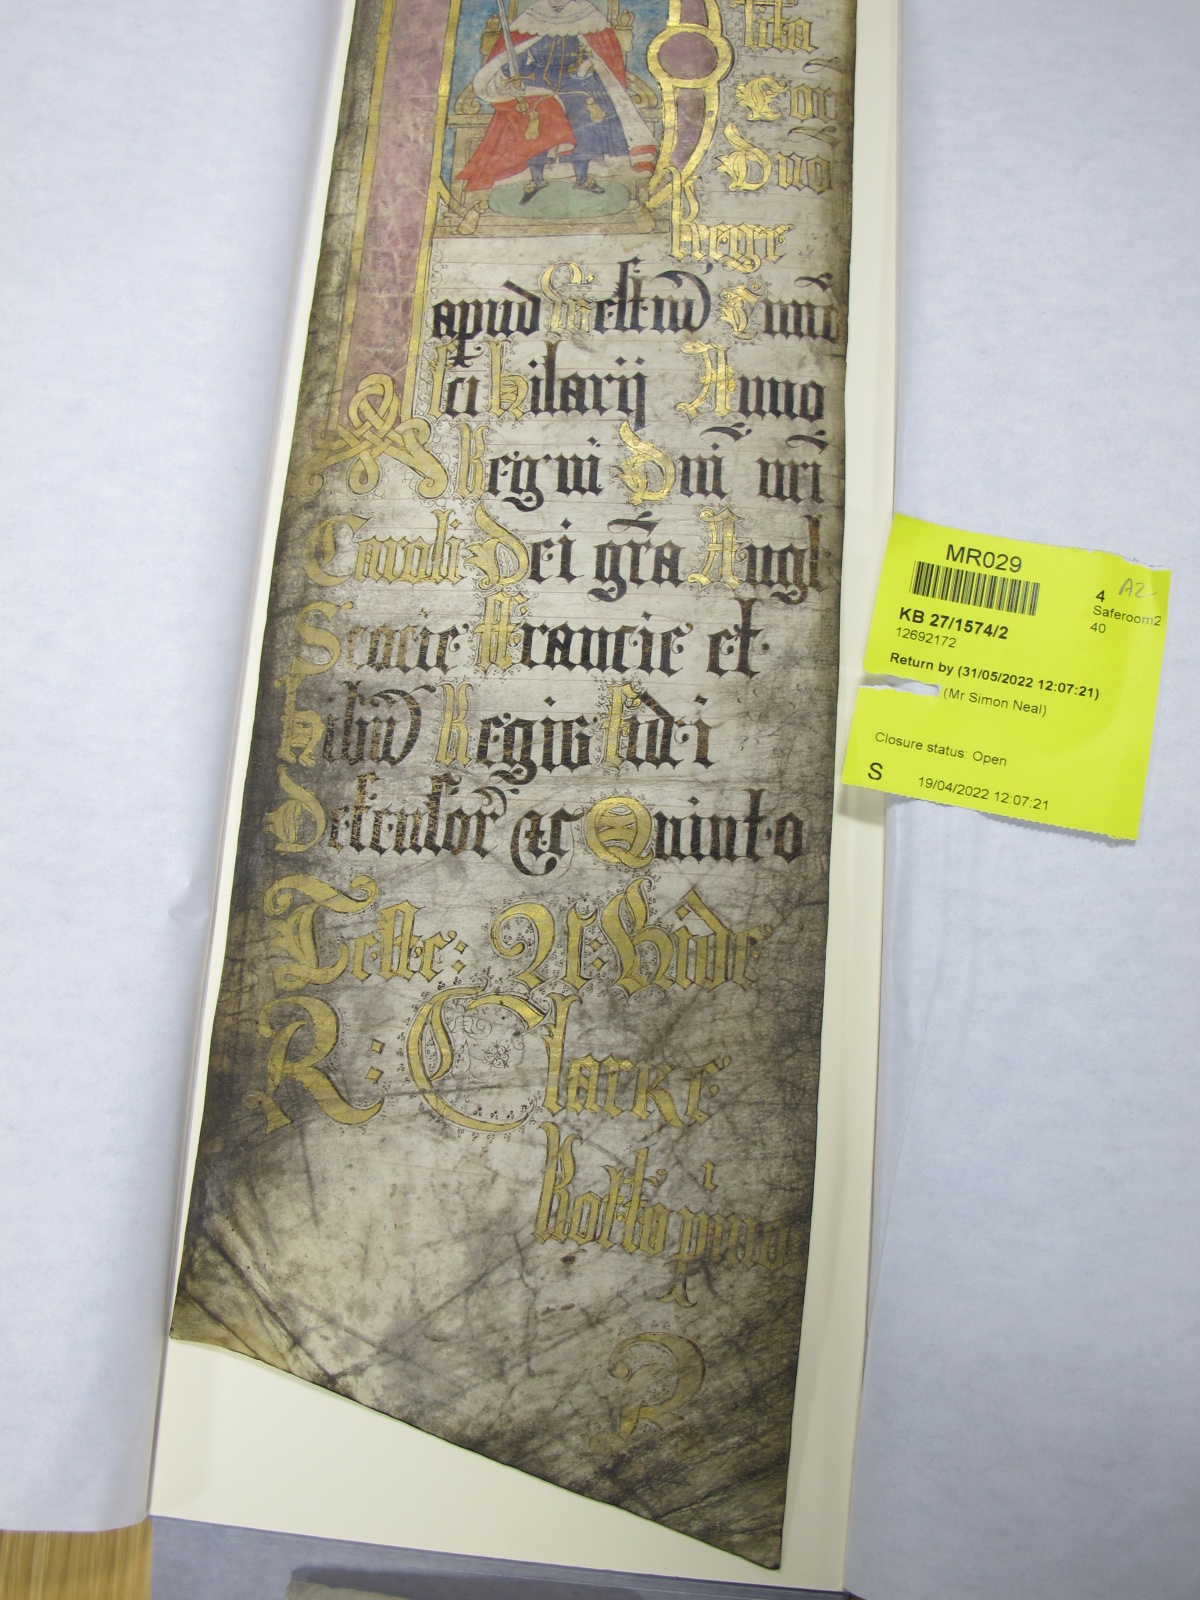 lita
Cor
Dno
Rege
apud Westm̃ Tmiñ
sci Hilarij Anno
Regni Dni nri
Caroli Dei gra Angl
Scocie Francie et
Hibn̄ Regis fidei
Defensor &c Quinto
Teste: N: Hide
R: Clarke
Rotto primo
MR029
4 A2
Saferoom2
40
KB 27/1574/2
12692172
Return by (31/05/2022 12:07:21)
(Mr Simon Neal)
Closure status: Open
S 19/04/2022 12:07:21